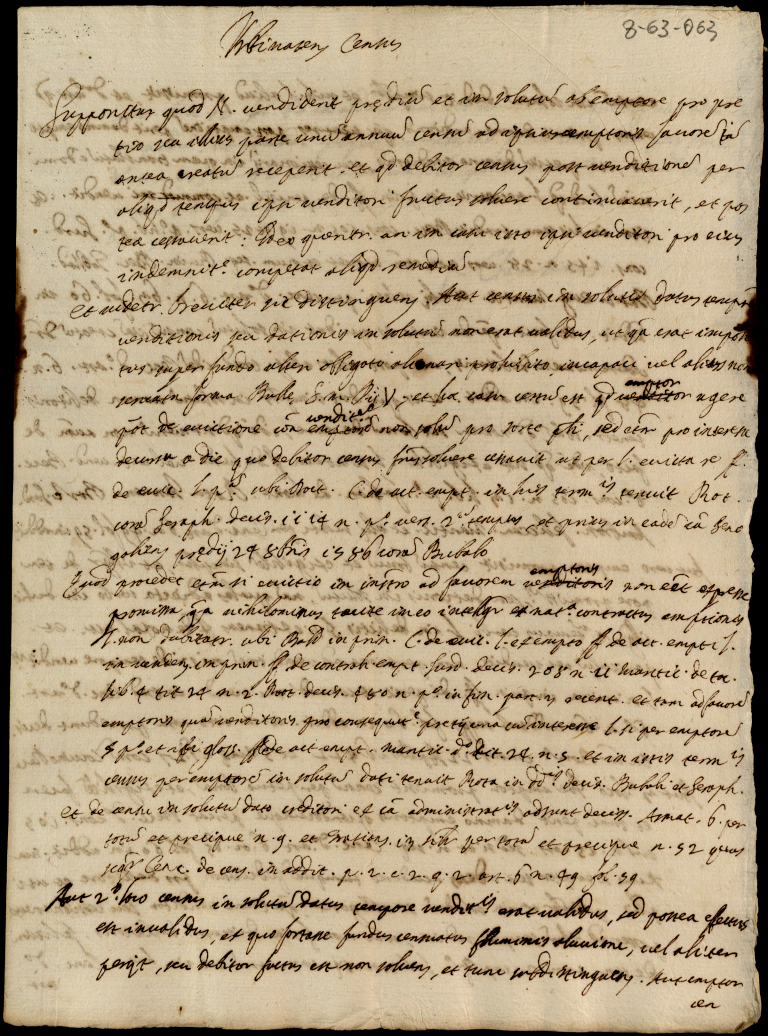 8-63-063
Urbinaten Census
Supponitur quod N. vendiderit prędiū et in solutū ab emptore pro pre
tio seu illius parte unū annuū censū ad ipsius emptoris favorē iā
antea creatū receperit et qd debitor census post venditionē per
aliqd tempus ipsi venditori fructus solvere continuaverit, et pos
tea cessaverit: Ideo queritr. an in casu isto ipsi venditori pro eius
indemnit.e competat aliqd remediū
et videtr. breviter sic distinguen; Aut census in solutū datus tempr̄e
venditionis seu dationis in solutū non erat validus, ut q̄a erat impos
tus super fundo alteri obligato alienari prohibito incapaci vel alias non
servata forma Bullę S. m. Pij V, et hoc casu certū est qd emptor agere
pōt de evictione con venditorē non solū pro sorte pli, sed etiā pro interesse
decurso a die quo debitor census fr̄us solvere cessavit ut per l. evicta re ff.
de evic. l. p.a ubi Boit. C. de act. empt. in his term.is tenuit Rot.
corā Seraph. decis. 1114 n. p.o vers. 2.o tempus, et prius in eadē cā Sene
galien prędij 24 8bris 1586 corā Bubalo
Quod procedet etiā si evictio in instr̄o ad favorem emptoris non eēt expresse
promissa, q̄a nihilominus tacite in eo intelligr et nat.a contractus emptionis
N. non dubitatr. ubi Bald in prin. C. de evic. l. ex empto ff. de act. empti l.
in venden. in prin. ff. de contrah. empt. Surd. decis. 208 n. 11 Mantic. de ta.
lib. 4 tit 24 n. 2. Rot. decis. 480 n. p.o in fin. par. 1 recent. et tam ad favorē
emptoris quā venditoris pro consequut.e pretij una cū interesse l. si per emptorē
§ p.o et ibi gloss. ff de act empt. Mantic. d.o tit. 24. n. 5. et in istis term.is
census per emptorē in solutū dati tenuit Rota in dd.is decis. Bubali et Seraph.
et de censu in solutū dato creditori ex cā administrat.is adsunt deciss. Amat. 6. per
totū et precipue n. 9. et Gratian. per totū et precipue n. 52 quos
seqr Cenc. de cens. in addit. p. 2. c. 2. q. 2. art. 6 n. 49 fol. 59
Aut 2.o loco census in solutū datus tempore vendit.is erat validus, sed postea effectus
est invalidus, et quo fortasse fundus censuatus fluminis alluvione, vel aliter
perijt, seu debitor factus est non solven, et tunc subdistinguen. Aut emptor
cen